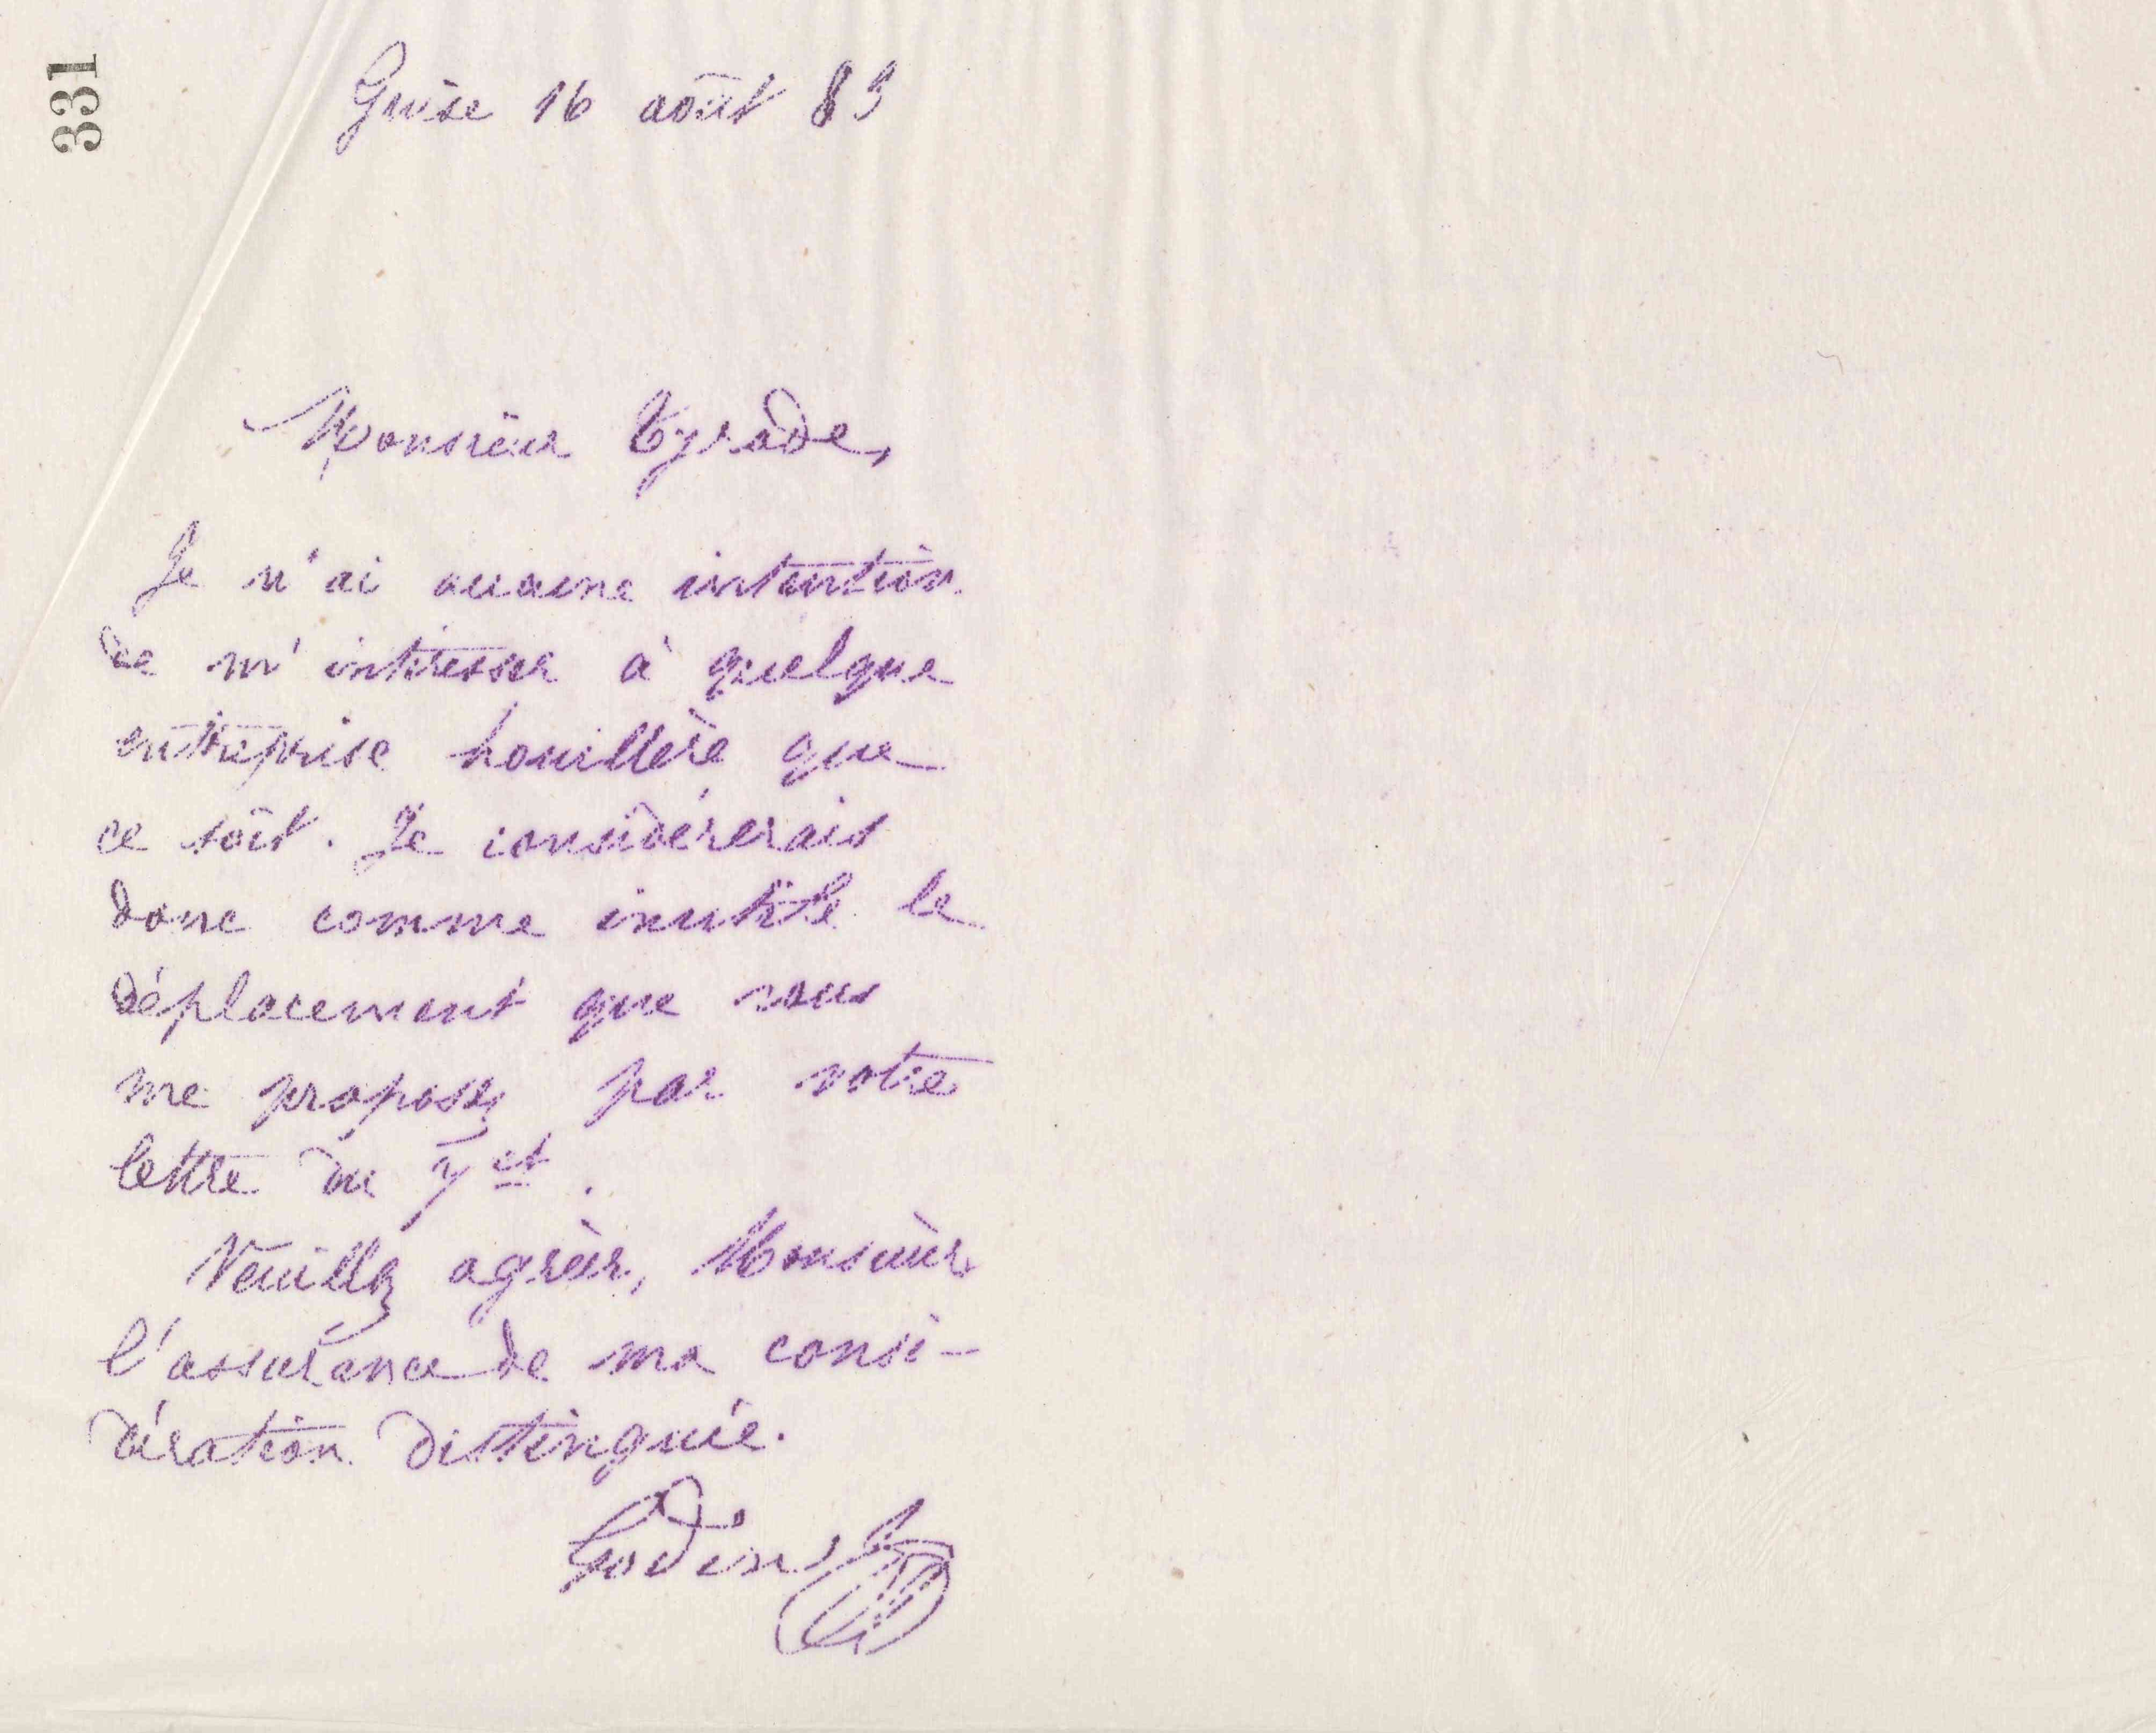 331
Guise 16 août 83
Monsieur Tyrade,
Je n'ai aucune intention
de m'intéresser à quelque
entreprise houillère que
ce soit. Je considérerais
donc comme inutile le
déplacement que vous
me proposez par votre
lettre du 7 ct.
Veuillez agréer, Monsieur
l'assurance de ma consi-
dération distinguée.
Godin